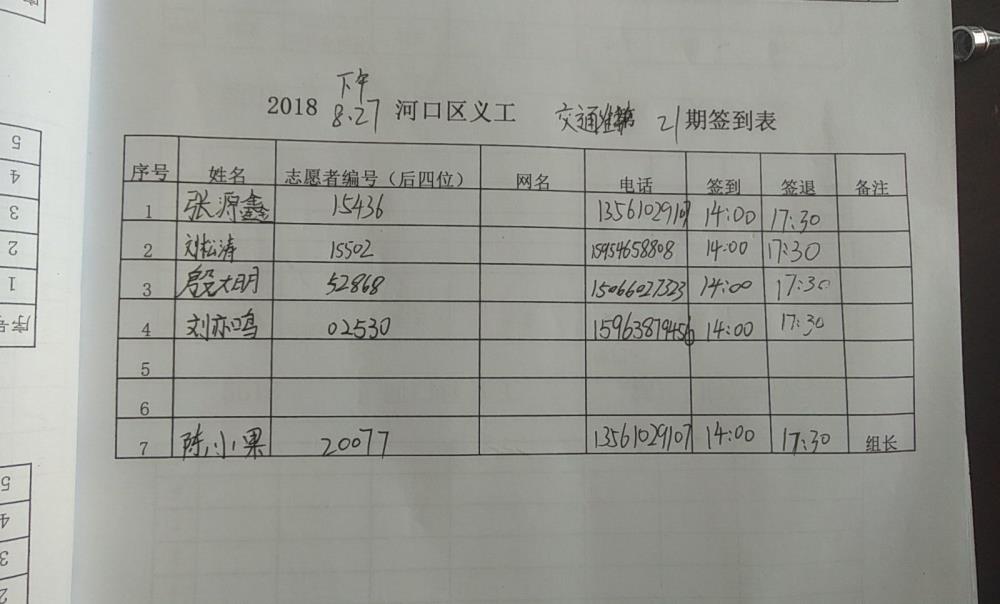 下午
2018 8.27 河口区义工 交通 第 21 期签到表
序号 姓名 志愿者编号（后四位） 网名 电话 签到 签退 备注
1 张源鑫 15436 13561029107 14:00 17:30
2 刘松涛 15502 15954658808 14:00 17:30
3 大明 52868 15066027323 14:00 17:30
4 刘亦鸣 02530 15963879456 14:00 17:30
5
6
7 陈小果 20077 13561029107 14:00 17:30 组长
5
4
3
2
1
序号
5
4
3
2